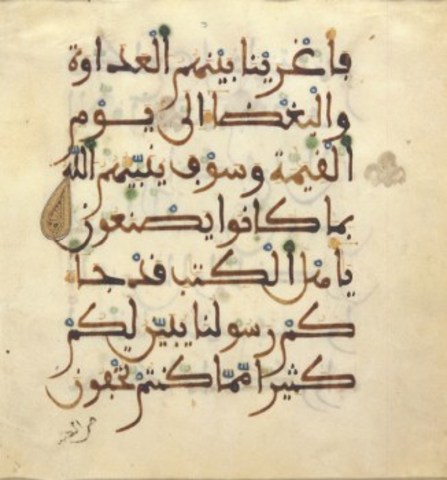 فاغرينا بينهم العداوة
والبغضا الى يوم
القيمة وسوف ينبيهم الله
بما كانوا يصنعون
ياهل الكتب قد جا
كم رسولنا يبين لكم
كثيرا مما كنتم تخفون